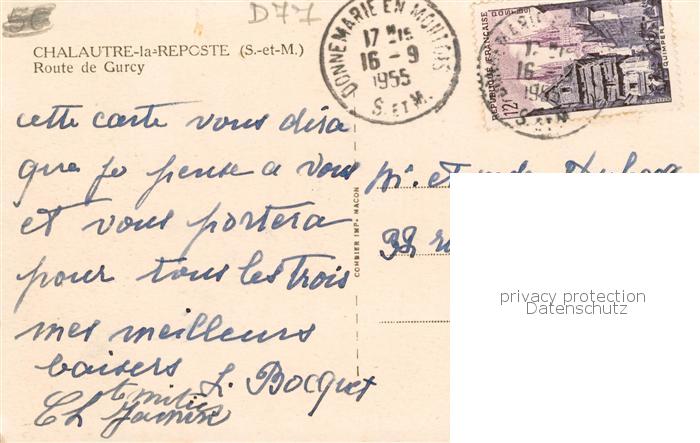 D77
CHALAUTRE-la-REPOSTE (S.-et-M.)
Route de Gurcy
DONNEMARIE EN MONTOIS
17 H 15
16 - 9
1955
S. ET M.
REPUBLIQUE FRANÇAISE
POSTES
12F
QUIMPER
1955
S. ET M.
cette carte vous dira
que je pense a vous
et vous portera
pour tous les trois
mes meilleurs
baisers L. Bocquet
COMBIER IMP. MACON
M. et
32 r
privacy protection
Datenschutz